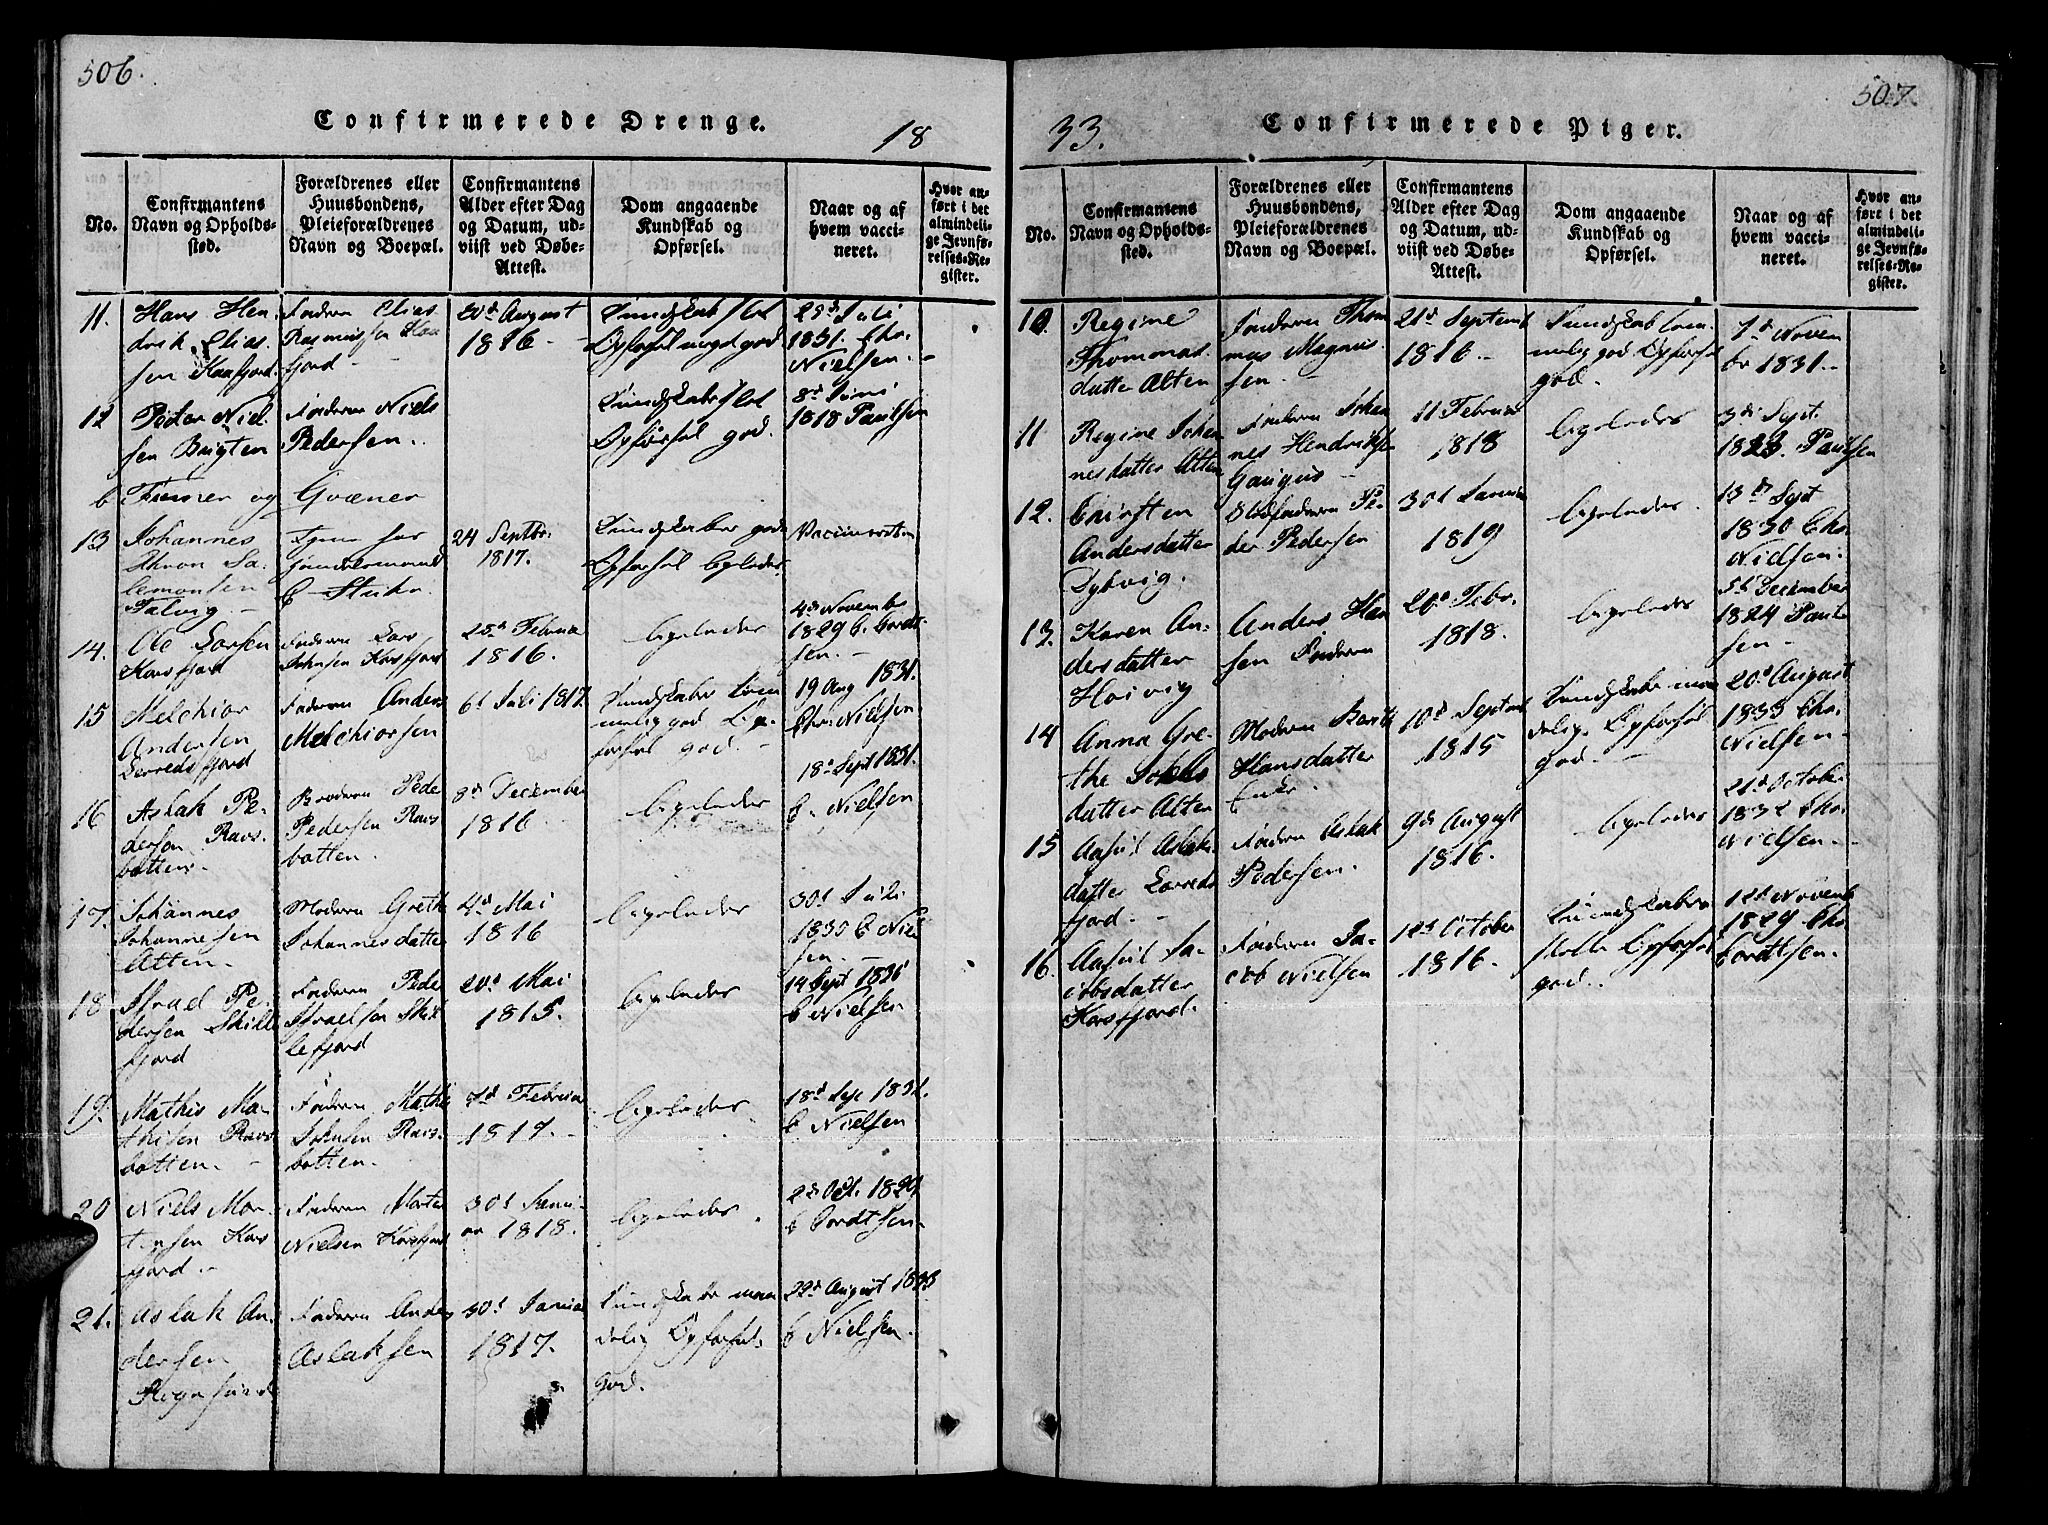 506.
Confirmerede Drenge.
18
No.
Confirmantens
Navn og Opholds-
stød.
Forældrenes eller
Huusbondens,
Pleieforældrenes
Navn og Boepæl.
Confirmantens
Alder efter Dag
og Datum, ud-
viist ved Døbe-
Attest.
Dom angaaende
Kundskab og
Opførsel.
Naar og af
hvem vacci-
neret.
Hvor an-
ført i det
almindeli-
ge Jevnfø-
relses-Re-
gister.
11.
Hans Hen-
drik Elias-
sen Kaafjord.
Faderen Elias
Rasmussen Kaa
fjord
20d August
1816
Kundskab slet
Opførsel meget god
29d Juli
1831. Chr.
Nielsen.
12
Peder Niel-
sen Bugten
Faderen Niels
Pedersen.
Kundskaber slet
Opførsel god.
8d Juni
1818 Paulsen
b Finner og Qvæner
13
Johannes
Thron Sa-
lomonsen
Talvig.
24 Septbr.
1817.
Kundskaber gode
Opførsel ligeledes.
Vaccineret
14.
Ole Larsen
Korsfjord
Faderen Lars
Johnsen Korsfjord
25d Februar
1816.
ligeledes
4d November
1829 C. Cordt-
sen.
15
Melchior
Andersen
Lerredsfjord
Faderen Anders
Melchiorsen
6d Juli 1817.
Kundskaber tem
melig god Op-
førsel god.
19 Aug 1831.
Chr. Nielsen
16
Aslak Pe-
dersen Ravs-
botten.
Broderen Pede
Pedersen Ravs
botten.
8d December
1816
ligeledes
18d Sept 1831.
C. Nielsen
17.
Johannes
Johannesen
Alten.
Moderen Grethe
Johannesdatte
4d Mai
1816
ligeledes
30d Juli
1830 C Niel
sen.
18
Israel Pe-
dersen Skille
fjord
Faderen Pede
Israelsen Skil
lefjord
20d Mai
1815.
ligeledes
14 Sept 1831
C Nielsen
19.
Mathis Ma-
thisen Ravs
botten.
Faderen Mathi
Johnsen Ravs-
botten.
7d Februar
1817.
ligeledes
18d Sep 1831.
C Nielsen
20
Niels Mor-
tensen Kors
fjord.
Faderen Morte
Nielsen Korsfjord
30d Janu-
ar 1818.
ligeledes
2d Oct. 1829.
C Cordtsen.
21.
Aslak An-
dersen
Faderen Anders
Aslaksen
30d Januar
1817.
Kundskaber maa
delig Opførsel
god.
22d August 1833
C Nielsen.
507.
33.
Confirmerede Piger.
No.
Confirmantens
Navn og Opholds-
sted.
Forældrenes eller
Huusbondens,
Pleieforældrenes
Navn og Boepæl.
Confirmantens
Alder efter Dag
og Datum, ud-
viist ved Døbe-
Attest.
Dom angaaende
Kundskab og
Opførsel.
Naar og af
hvem vacci-
neret.
Hvor an-
ført i det
almindeli-
ge Jevnfø-
relses-Re-
gister.
10.
Regine
Thommas
datter Alten
Faderen Thom
mas Magnus-
sen.
21d Septemb
1816.
Kundskab tem-
melig god Opførsel
god.
7d Novem
br 1831.
11
Regine Johan
nesdatter Alten
Faderen Johan
nes Hendriksen
11 Februar
1818
ligeledes
3d Sept.
1823. Paulsen
12.
Andersdatter
Stedfaderen Pe-
der Pedersen
30d Januar
1819
ligeledes.
13d Sept
1830 Chr.
Nielsen.
13.
Karen An-
dersdatter
Anders Han
sen Faderen
20d Febr.
1818.
ligeledes
5d December
1824 Paul-
sen
14
Anna Gre-
the
datter Alten
Moderen
Hansdatter
Enke.
10d Septemb
1815
Kundskaber maa
delig Opførsel
god.
20d August
1833 Chr.
Nielsen.
15
Aslak-
datter Lerreds
fjord.
Faderen Aslak
Pedersen.
9d August
1816.
ligeledes
21d Octobe
1832 Chr.
Nielsen.
16.
Ja-
cobsdatter
Korsfjord.
Faderen Ja-
cob Nielsen
12d October
1816.
Kundskaber
slette Opførsel
god.
12d Novemb
1829 Chr.
Cordtsen.